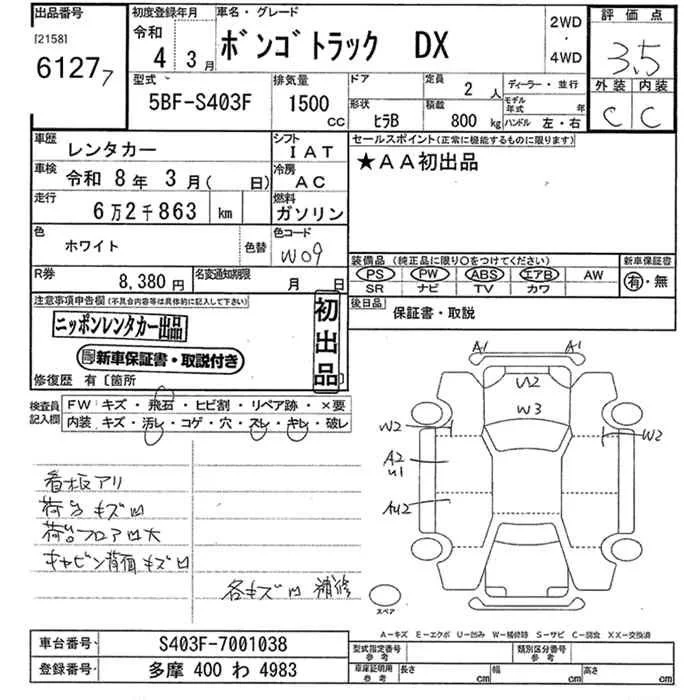 出品番号
[2158]
6127 7
初度登録年月
令和
4 3月
車名・グレード
ボンゴトラック DX
2WD
・
4WD
評価点
3.5
外装 内装
C C
型式
5BF-S403F
排気量
1500 CC
ドア
形状
ヒラB
定員
2 人
積載
800 kg
ディーラー・並行
モデル年式 年
ハンドル 左・右
車歴
レンタカー
シフト
IAT
車検
令和 8年 3月( 日)
冷房
AC
走行
6万2千863 km
燃料
ガソリン
色
ホワイト
色替
色コード
W09
R券
8,380円
名変通知期限
月 日
セールスポイント(正常に機能するものに限ります)
★AA初出品
装備品 (純正品に限り○をつけてください)
PS PW ABS エアB AW
SR ナビ TV カワ
新車保証書
有・無
後日品
保証書・取説
注意事項申告欄(不具合内容等は具体的に記入して下さい)
ニッポンレンタカー出品
新車保証書・取説付き
初出品
修復歴 有〔箇所
検査員記入欄
FW キズ・飛石・ヒビ割・リペア跡・×要
内装 キズ・汚レ・コゲ・穴・スレ・キレ・破レ
看板アリ
荷台キズ凹
荷台フロア凹大
キャビン背面キズ凹
各キズ凹 補修
A1 A1
W2
W3
W2 W2
A2
U1
AU2
スペア
A-キズ E-エクボ U-凹み W-補修跡 S-サビ C-腐食 XX-交換済
車台番号 S403F-7001038
登録番号 多摩 400 わ 4983
型式指定番号 参考
類別区分番号 参考
車庫証明用 参考
長さ cm 幅 cm 高さ cm